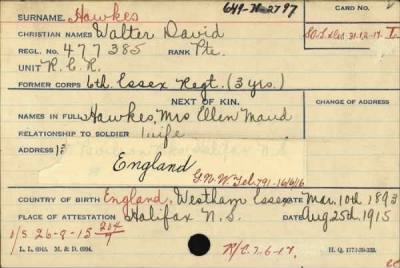 649-H-2797
CARD NO.
SURNAME. Hawkes
CHRISTIAN NAMES Walter David
REGL. NO. 477385 RANK Pte.
UNIT R.C.R.
FORMER CORPS 6th Essex Regt. (3 yrs.)
NEXT OF KIN. CHANGE OF ADDRESS
NAMES IN FULL Hawkes, Mrs Ellen Maud
RELATIONSHIP TO SOLDIER wife
ADDRESS
England
COUNTRY OF BIRTH England, Westham Essex DATE Mar. 10th 1893
PLACE OF ATTESTATION Halifax N.S. DATE Aug 25th 1915
O/S 26-8-15
L. L. 6945. M. & D. 6994. H. Q. 1771-39-332.